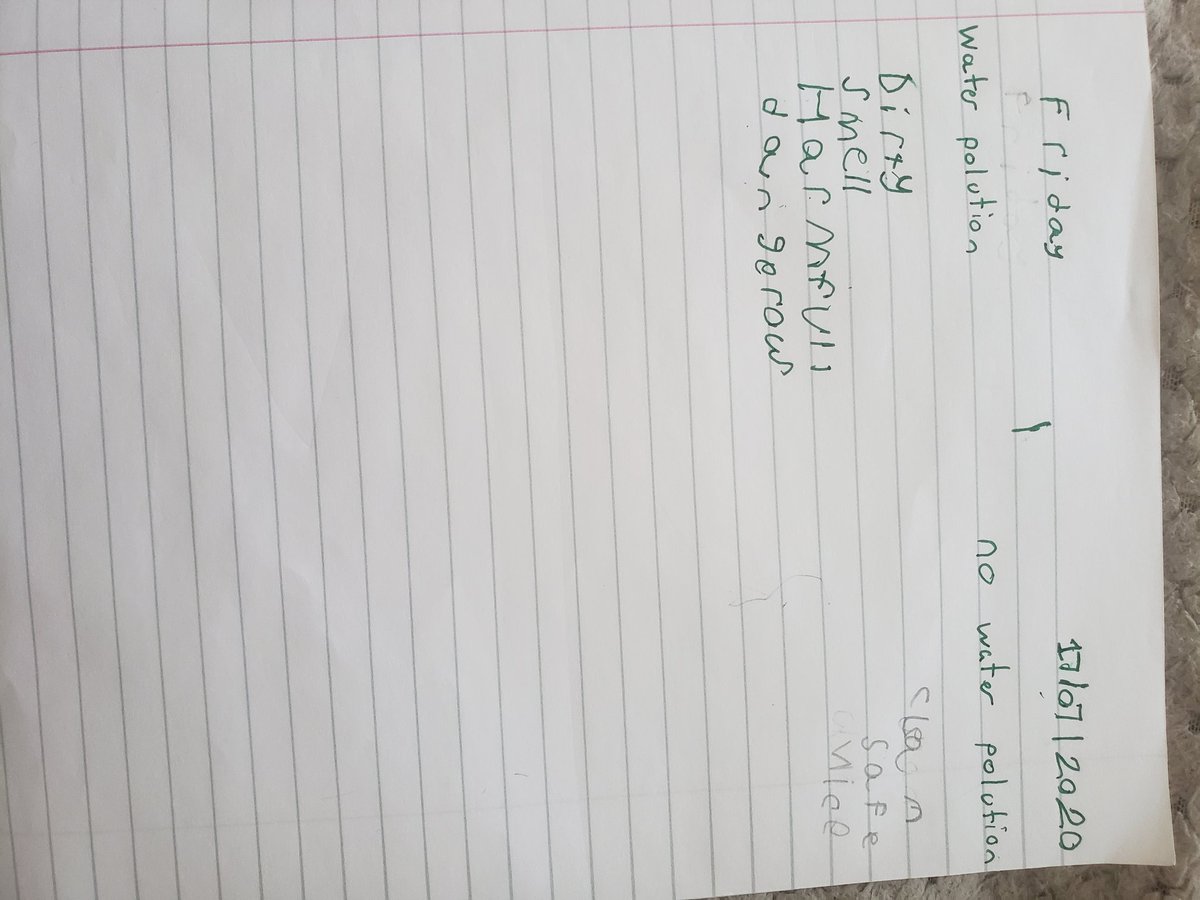 Friday 17/07/2020
water polution no water polution
Dirty clean
Smell safe
Harmfull Niec
dangerous